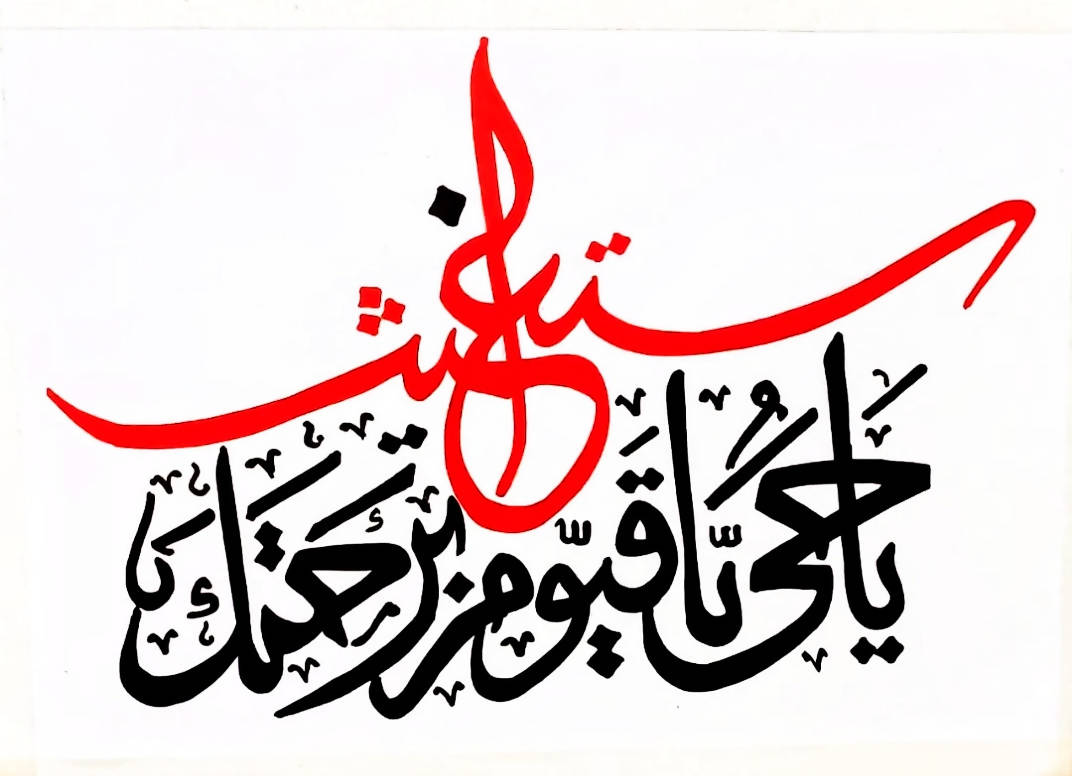 يا حي يا قيوم برحمتك
استغيث